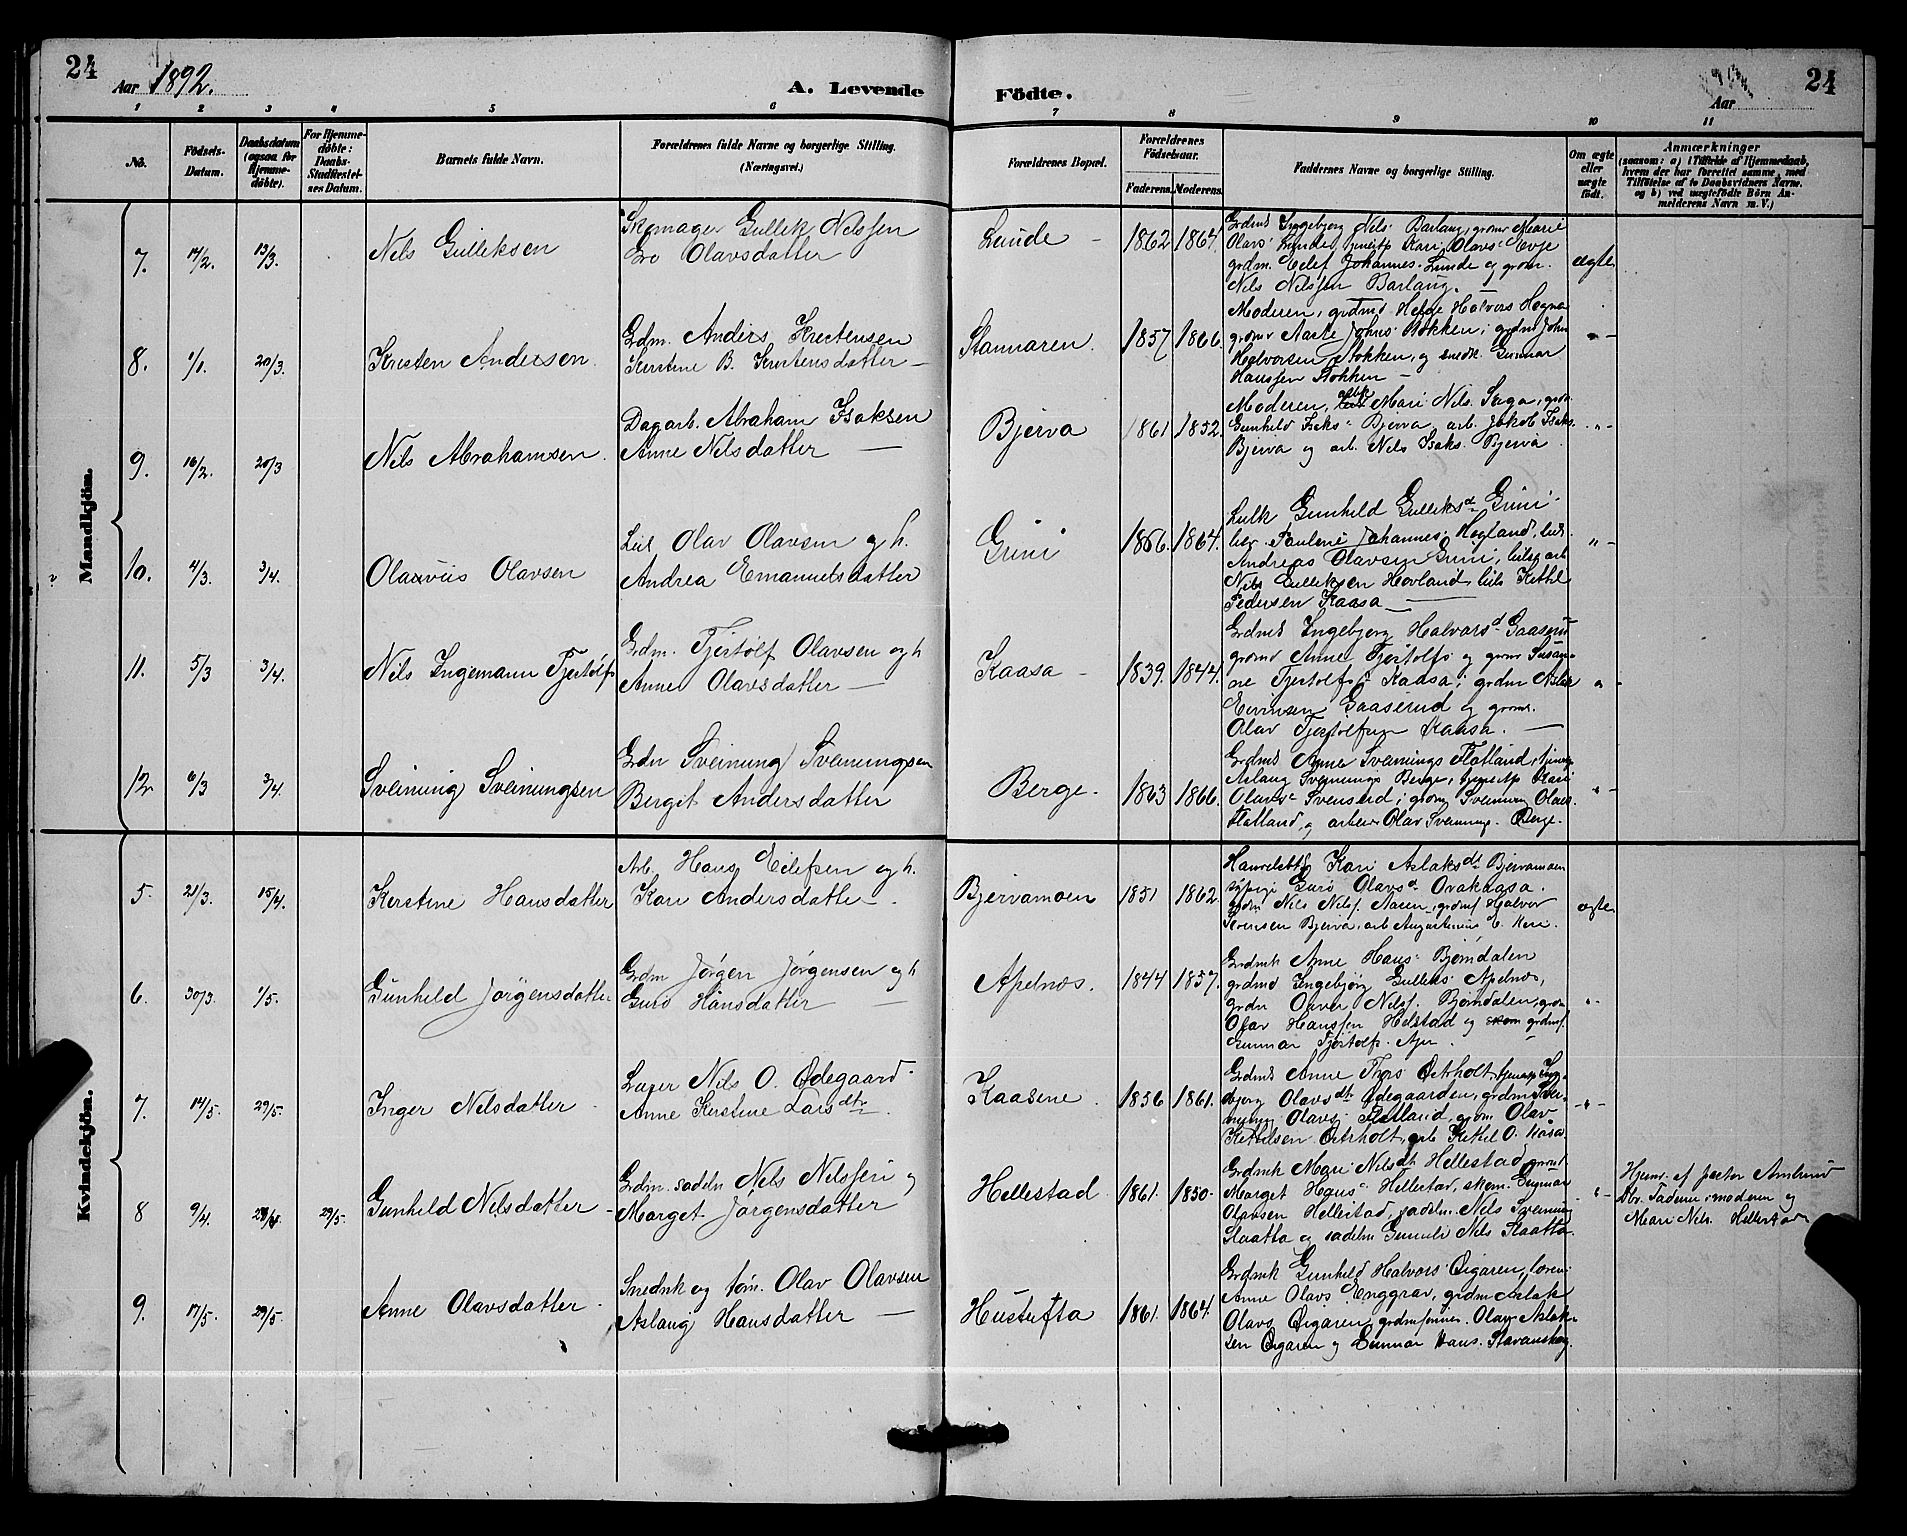 24
Aar 1892.
A. Levende Födte.
Aar
24
1 2 3 4 5 6 7 8 9 10 11
No.
Födsels-Datum.
Daabsdatum (ogsaa for Hjemme-döbte).
For Hjemme-döbte: Daabs-Stadfæstel-ses Datum.
Barnets fulde Navn.
Forældrenes fulde Navne og borgerlige Stilling. (Næringsvei.)
Forældrenes Bopæl.
Forældrenes Födselsaar.
Faderens. Moderens.
Faddernes Navne og borgerlige Stilling.
Om ægte eller uægte födt.
Anmærkninger
(saasom: a) i Tilfælde af Hjemmedaab,
hvem der har forrettet samme, med
Tilföielse af to Daabsvidners Navne.
og b) ved uægtefödte Börn An-
melderens Navn m. V.)
Mandkjön.
7. 17/2. 13/3. Nils Gulleksen
Skomager Gullek Nilssen
Gro Olavsdatter
Lunde - 1862 1864.
Grdmd Ingebjørg Nils. Barlaug, grdmr Marie
Olavs. Lunde, tjenestp Kari Olavs. Evje
grdm. Eilef Johannes. Lunde og grdm.
Nils Nilssen Barlaug.
ægte
8. 1/1. 20/3. Kristen Andersen.
Grdm. Anders Kristensen
Kirstine B. Kristensdatter -
Stannaren. 1857 1866.
Moderen, grdmd Helge Halvors Hegna
grdmr Aaste Johns. Stokken, grdm John
Halvorsen Stokken, og snedk. Gunnar
Hanssen Stokken -
" -
9. 16/2. 20/3 Nils Abrahamsen.
Dagarb. Abraham Isaksen
Anne Nilsdatter -
Bjerva 1861 1852.
Moderen, Mari Nils. Saga, grdm
Gunhild Isaks. Bjerva arb. Jakob Isaks.
Bjerva og arb. Nils Isaks. Bjerva
" -
10. 4/3. 3/4. Olavus Olavsen
Leil Olav Olavsen og h.
Andrea Emanuelsdatter
Grini 1866. 1864.
Leilk Gunhild Gulleksd Grini
Pauline Johannes. Hegland, leil.
Andreas Olavsen Grini, leils. arb
Nils Gulleksen Hovland, leils Kettil
Pedersen Kaasa -
" -
11. 5/3 3/4. Nils Ingemann Tjøstolfs
Grdm. Tjøstolf Olavsen og h
Anne Olavsdatter -
Kaasa - 1839. 1844.
Grdmd Ingebjørg Halvorsd Gaaserud
grdmd Anne Tjøstolfs og grdmr Susan-
ne Tjøstolfs. Kaasa, grdm Aslak
Eivinsen Gaaserud og grdmr.
Olav Tjøstolfsen Kaasa. -
" -
12. 6/3 3/4. Sveinung Sveinungsen
Grdm Sveinung Sveinungsen
Bergit Andersdatter
Berge. 1863 1866.
Grdmd Anne Sveinungs Flatland,
Aslaug Sveinungs Berge, tjenestp Kari
Olavs. Svenserud, grdmg Sveinung Olavs.
Flatland, og arbeir Olav Sveinungs. Berge.
" -
Kvindekjön.
5. 21/3. 15/4. Kerstine Hansdatter
Arb. Hans Eilefsen og h.
Kari Andersdatter.
Bjervamoen 1851 1862.
Kari Aslaksdt Bjervamoen
sypige Guro Olavsd. Ovakaasa.
grdm Nils Nilsf. Aasen, grdmf Halvor
Bjerva, arb Augustinius E. Kasi.
ægte
6. 30/3. 1/5. Gunhild Jørgensdatter
Grdm Jørgen Jørgensen og h
Guro Hansdatter -
Apelnos. 1844 1857.
Grdmk Anne Hans. Bjørndalen
grdmd Ingebjørg Gulleks. Apelnos,
grdm Oliver Nilsf. Bjørndalen, grdm
Olav Hanssen Helstad og grdmf.
Gunnar Tjøstolfs.
" -
7. 14/5. 29/5. Inger Nilsdatter -
Nils O. Ødegaard
Anne Kerstine Larsdtr.
Kaasene 1856 1861.
Grdmd Anne Thors Ørtholt,
bjørg Olavsdt Ødegaarden,
Olavs. Flatland, grdm. Olav
Kettilsen Ørtholt, arb Kettil O. Kåsa.
" -
8 9/4. 23/4. 29/5. Gunhild Nilsdatter -
Grdm. sadelm Nils Nilssen og
Marget Jørgensdatter
Hellestad 1861. 1850.
Grdmk Mari Nilsdt Hellestad,
Marget Hans. Hellestad, skom. Gunnar
Olavsen Hellestad, sadelm. Nils Sveinung
Slaatta og sadelm Gunnulv Nils Slaatta.
" -
Hjem. af pastor Amlund
Moderen og
Mari Nils. Hellestad
9. 17/5. 29/5. Anne Olavsdatter -
Snedrk og töm. Olav Olavsen
Aslaug Hansdatter -
Hustufta 1861. 1864.
Grdmk Gunhild Halvors. Øigaren,
Anne Olavs Enggrav, grdm Aslak
Olavs Øigaren, Olav Aslak-
sen Øigaren og Gunnar Hans. Stavanskog.